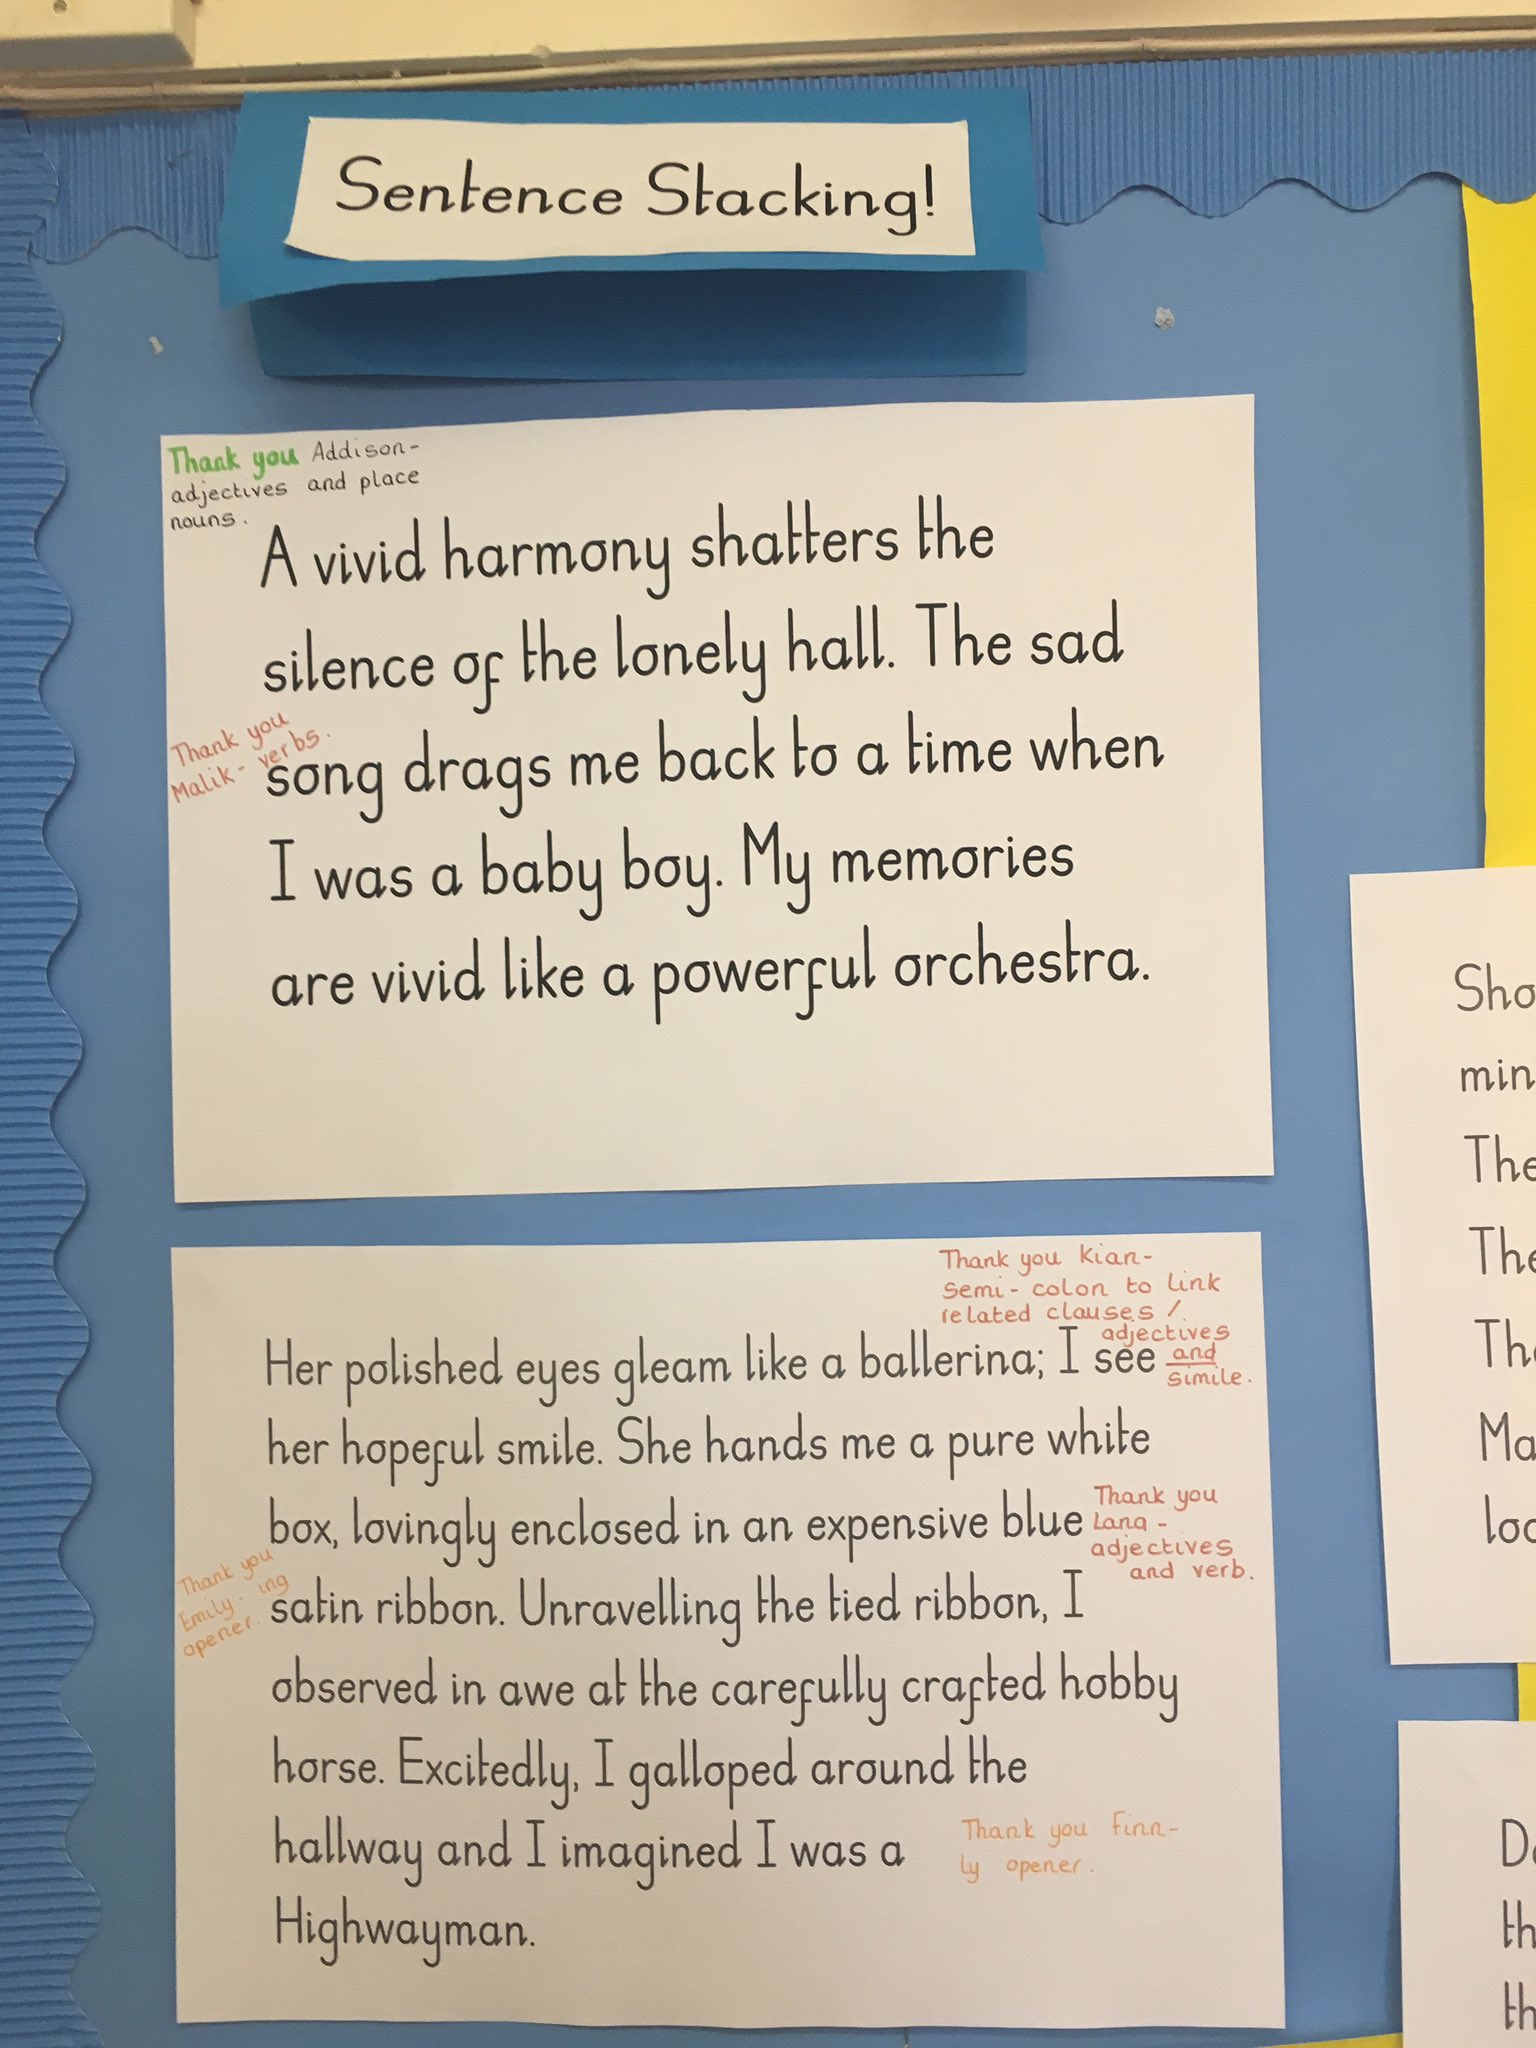 Sentence Stacking!
Thank you Addison-
adjectives and place
nouns.
A vivid harmony shatters the
silence of the lonely hall. The sad
Thank you
Malik- verbs.
song drags me back to a time when
I was a baby boy. My memories
are vivid like a powerful orchestra.
Thank you Kian-
Semi-colon to link
related clauses /
adjectives
and
simile.
Her polished eyes gleam like a ballerina; I see
her hopeful smile. She hands me a pure white
box, lovingly enclosed in an expensive blue
Thank you
Lana -
adjectives
and verb.
Thank you
Emily- ing
opener.
satin ribbon. Unravelling the tied ribbon, I
observed in awe at the carefully crafted hobby
horse. Excitedly, I galloped around the
hallway and I imagined I was a
Highwayman.
Thank you Finn-
ly opener.
Sho
min
The
The
Tho
Ma
loo
Do
th
th